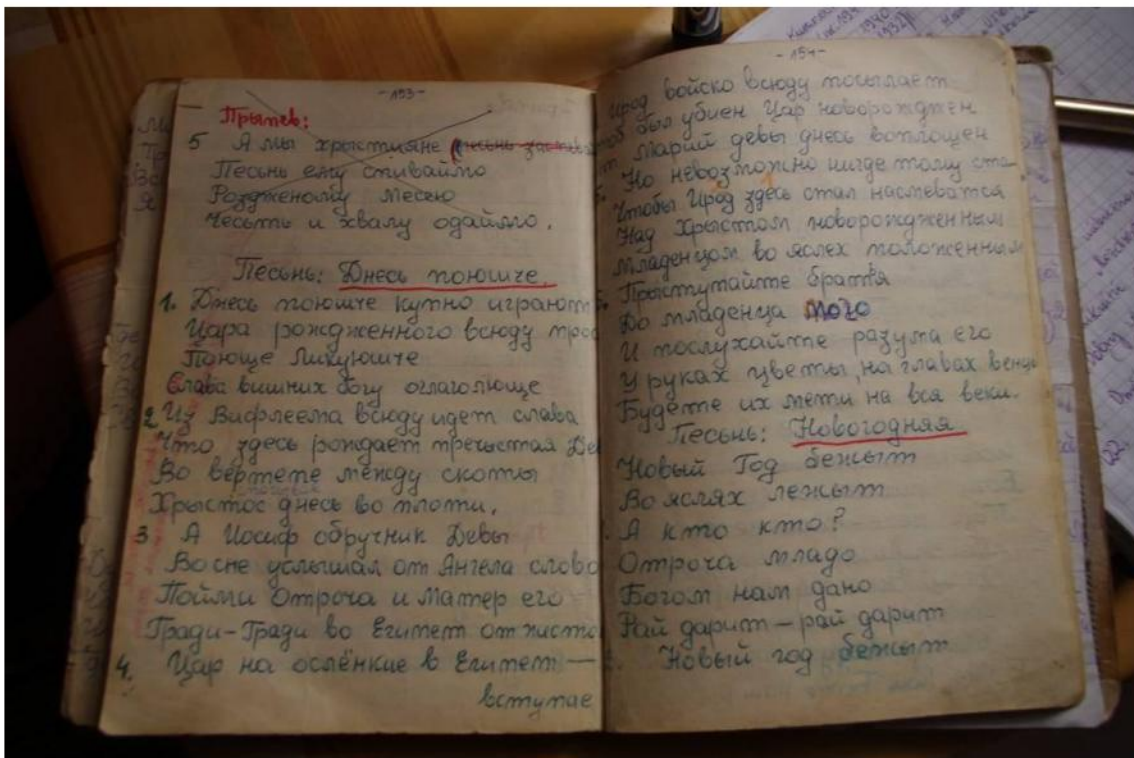 -153-
Прыпев:
5 А мы хрыстияне
Песьнь ему спиваймо
Розджёному месею
Чесьть и хвалу одаймо.
Песьнь: Днесь поюшче.
1. Днесь поюшче купно играют
Цара рождженного всюду
Поюще Ликуюшче
Слава вишних богу оглаголюще
2. Из Вифлеема всюду идет слава
Что здесь рождает пречыстая
Во вертепе между скоты
Хрыстос днесь во плоти.
3 А Иосиф обручник Девы
Во сне услышал от Ангела слово
Пойми Отроча и Матер его
Гради-Гради во Египет от
4. Цар на ослёнкие в Египет —
вступае
-154-
Ирод войско всюду посылает
был убиен Цар новорожджен
Марий девы днесь воплощен
Но невозможно нигде тому
Чтобы Ирод здесь стал насмеватся
Над Хрыстом новорожджённым
Младенцом во яслех положенным
Прыступайте братья
До младенца того
И послухайте разума его
У руках цветы, на главах
Будете их мети на вся веки.
Песьнь: Новогодняя
Новый Год бежыт
Во яслях лежыт
А кто кто?
Отроча младо
Богом нам дано
Рай дарит — рай дарит
Новый год бежыт